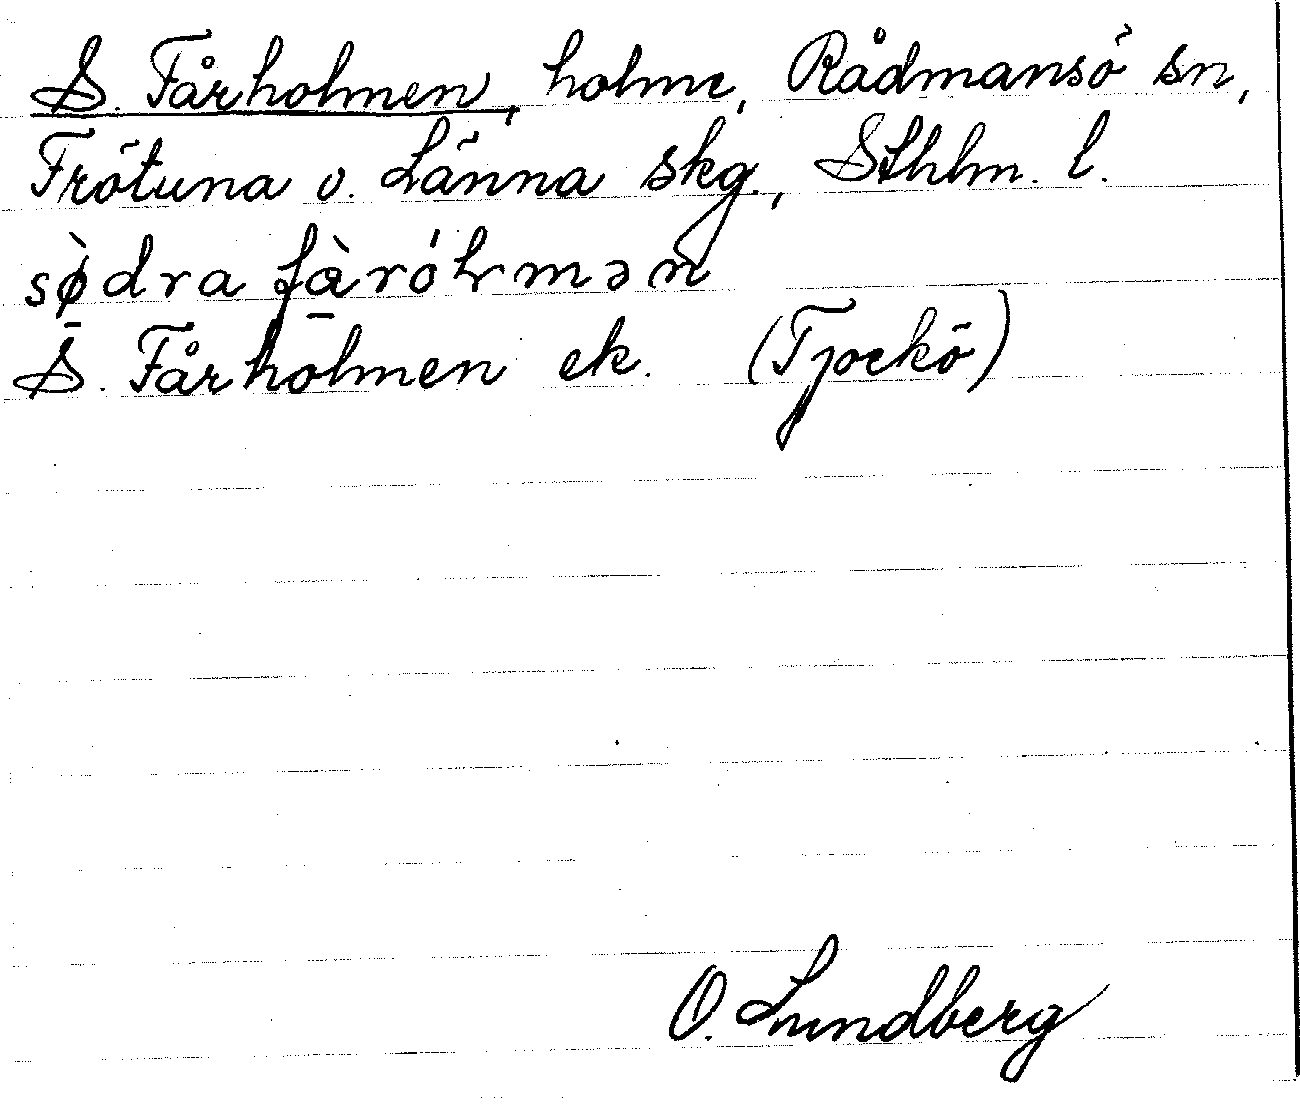 S. Fårholmen, holme, Rådmansö sn,
Frötuna o. Länna skg., Sthlm. l.
sø̀dra fàrólmən
S. Fårholmen ek. (Tjockö)
O. Lundberg